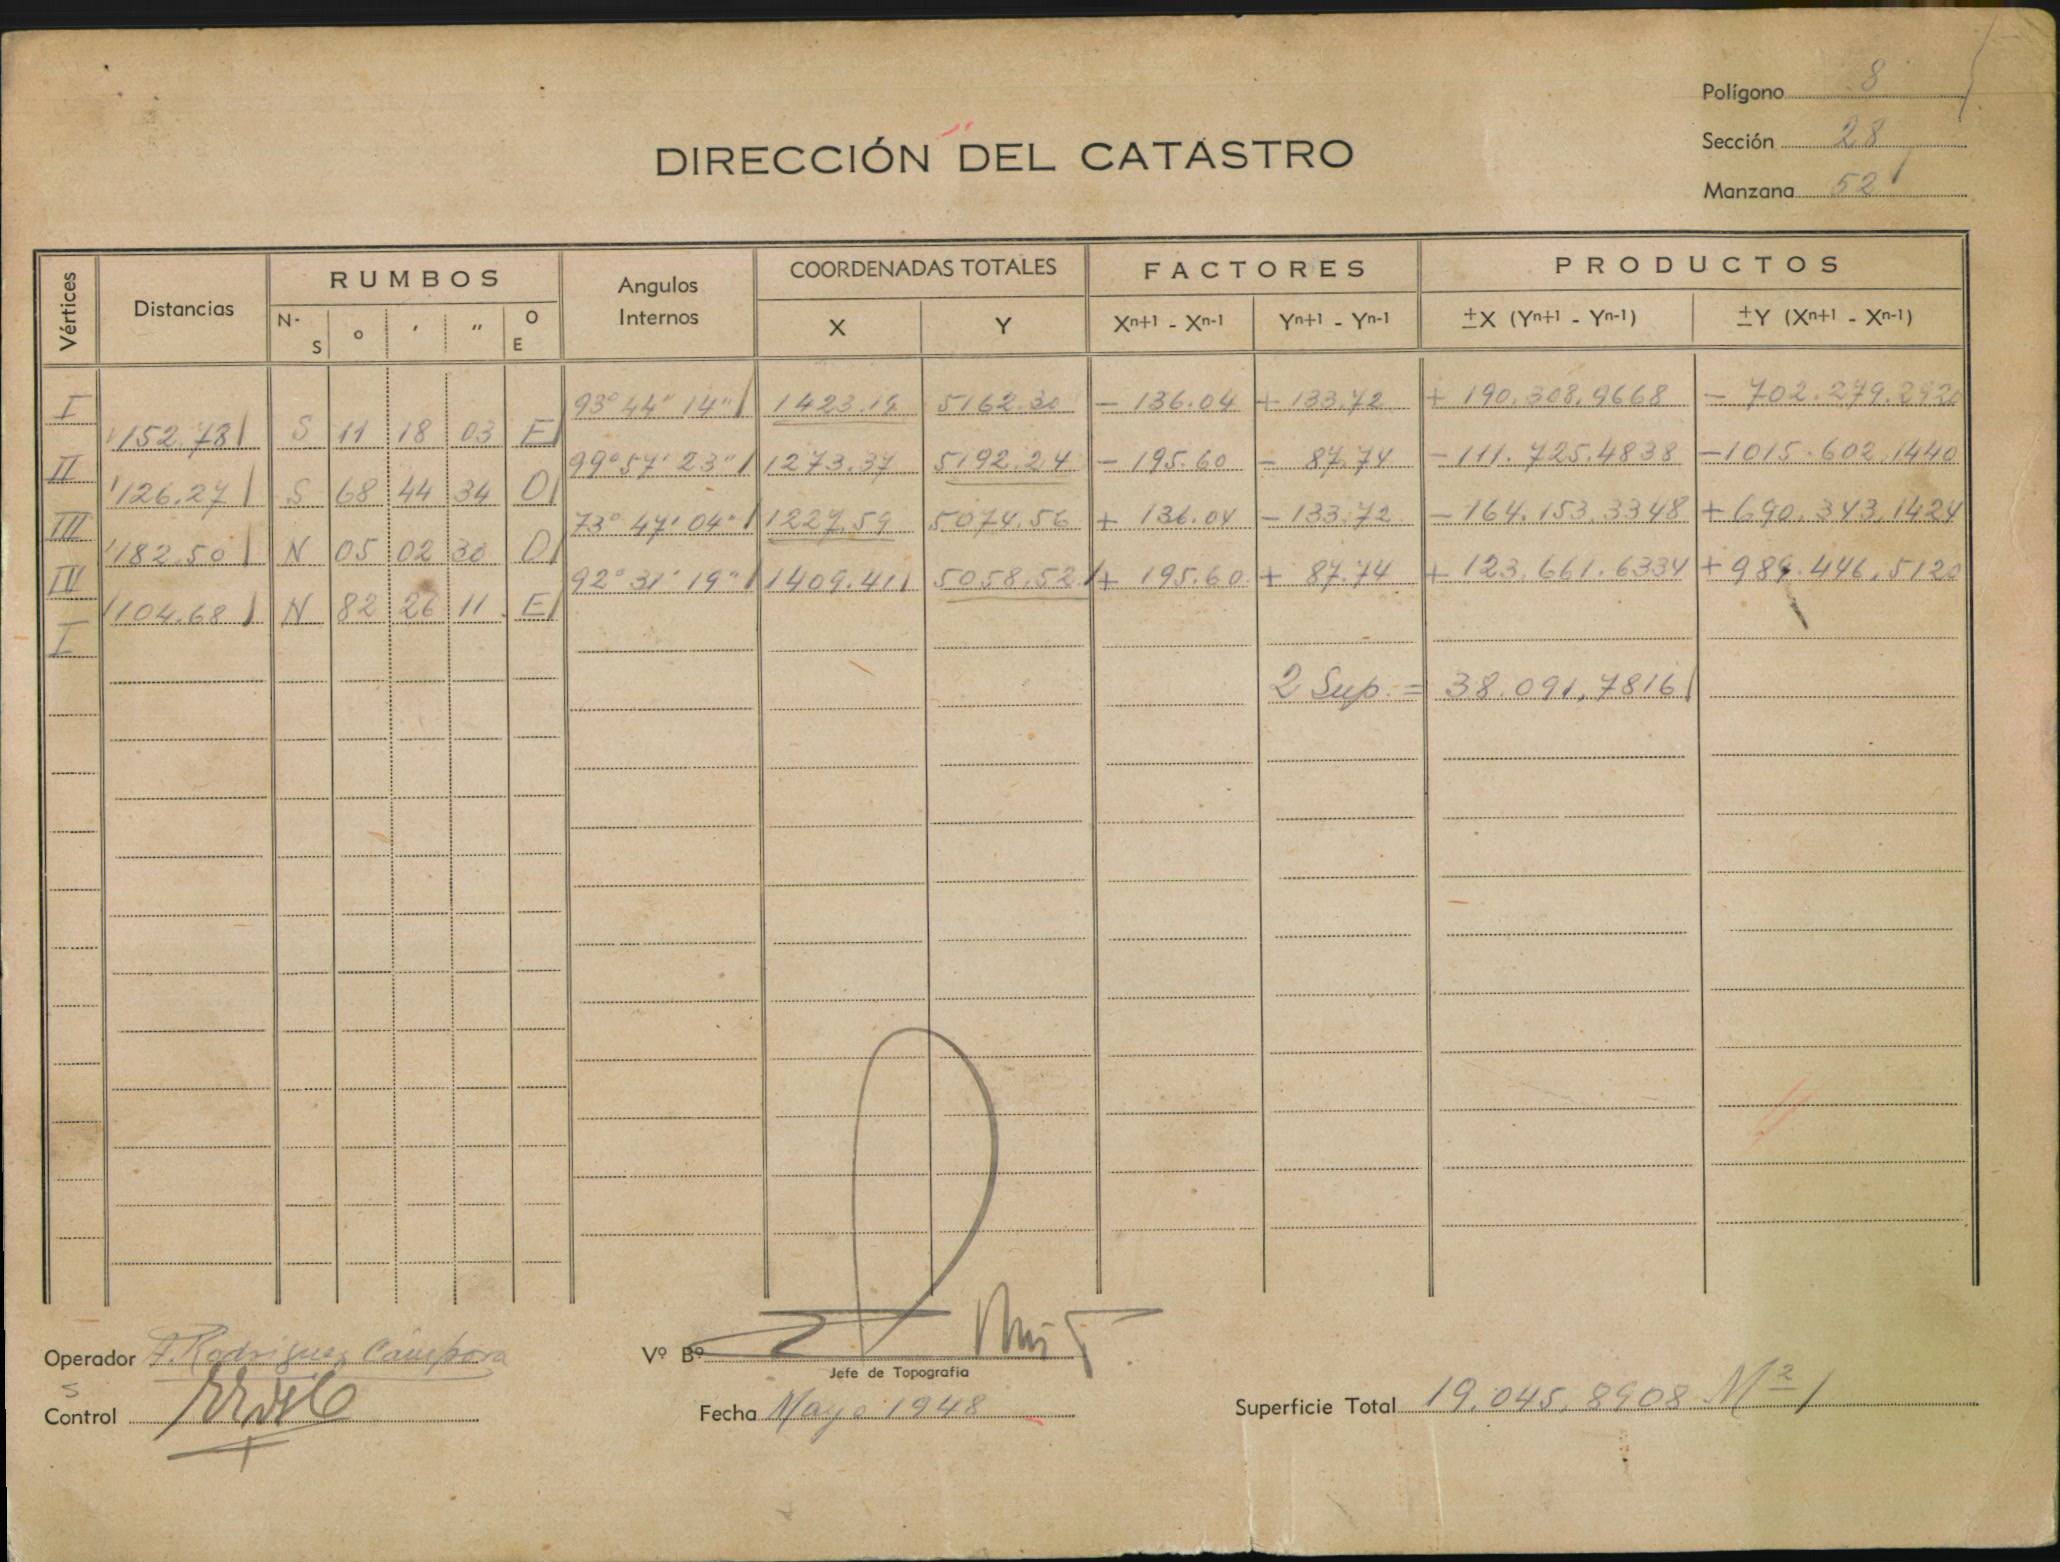 Polígono 8
Sección 28
Manzana 52
DIRECCIÓN DEL CATASTRO
Vértices Distancias RUMBOS Angulos Internos COORDENADAS TOTALES FACTORES PRODUCTOS
N- S o ′ ″ O E X Y Xn+1 - Xn-1 Yn+1 - Yn-1 ±X (Yn+1 - Yn-1) ±Y (Xn+1 - Xn-1)
I 93° 44" 14" 1423.19 5162.30 - 136.04 + 133.72 + 190.308.9668 - 702.279.2920
152.78 S 11 18 03 E
II 99° 57' 23" 1273.37 5192.24 - 195.60 - 87.74 - 111.725.4838 - 1015.602.1440
126.27 S 68 44 34 O
III 73° 47' 04" 1227.59 5074.56 + 136.04 - 133.72 - 164.153.3348 + 690.343.1424
182.50 N 05 02 30 O
IV 92° 31' 19" 1409.41 5058.52 + 195.60 + 87.74 + 123.661.6334 + 989.446.5120
104.68 N 82 26 11 E
I
2 Sup. = 38.091,7816
Operador F. Rodriguez Cámpora
Vº Bº
Jefe de Topografía
Control
Fecha Mayo 1948
Superficie Total 19.045.8908 M2